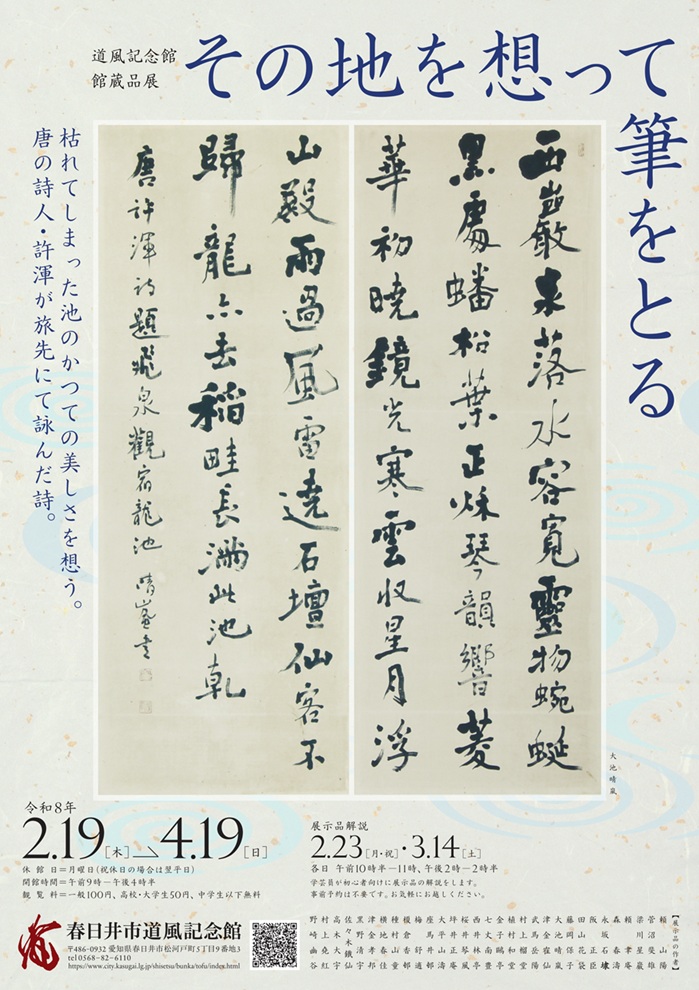 道風記念館
館蔵品展
その地を想って
筆をとる
枯れてしまった池のかつての美しさを想う。
唐の詩人・許渾が旅先にて詠んだ詩。
西巖泉落水容寬靈物蜿蜒
黑處蟠松葉正秌琴韻響菱
華初曉鏡光寒雲收星月浮
山殿雨過風雷遶石壇仙客不
歸龍亦去稻畦長滿此池乾
唐許渾詩題飛泉觀宿龍池 晴嵐書
大池晴嵐
令和8年
2.19[木]→4.19[日]
休館日=月曜日(祝休日の場合は翌平日)
開館時間=午前9時－午後4時半
観覧料=一般100円、高校・大学生50円、中学生以下無料
展示品解説
2.23[月・祝]・3.14[土]
各日 午前10時半－11時、午後2時－2時半
学芸員が初心者向けに展示品の解説をします。
事前予約は不要です。お気軽にお越しください。
春日井市道風記念館
〒486-0932 愛知県春日井市松河戸町5丁目9番地3
tel 0568-82-6110
https://www.city.kasugai.lg.jp/shisetsu/bunka/tofu/index.html
【展示品の作者】
頼山陽
菅沼斐雄
梁川星巖
森春濤
永坂石埭
阪正臣
田山花袋
藤岡保子
大池晴嵐
津金寉仙
植村和堂
黒野清宇
佐々木鐵仙
高木大宇